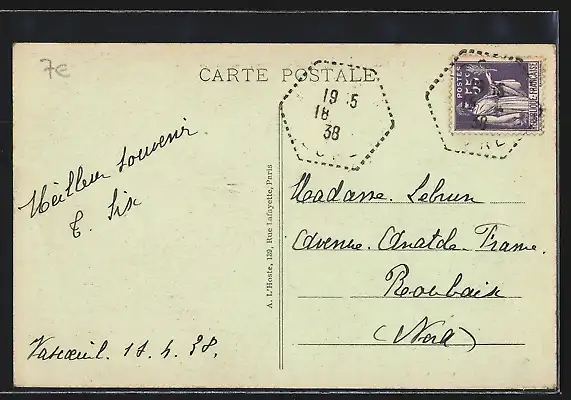 7e
CARTE POSTALE
POSTES
19 15
18
38
EURE
Meilleur souvenir
E. Six
Vascœuil. 18. 4. 38.
A. L'Hoste, 139, Rue Lafayette, Paris
Madame. Lebrun
Avenue. Anatole France.
Roubaix
(Nord)